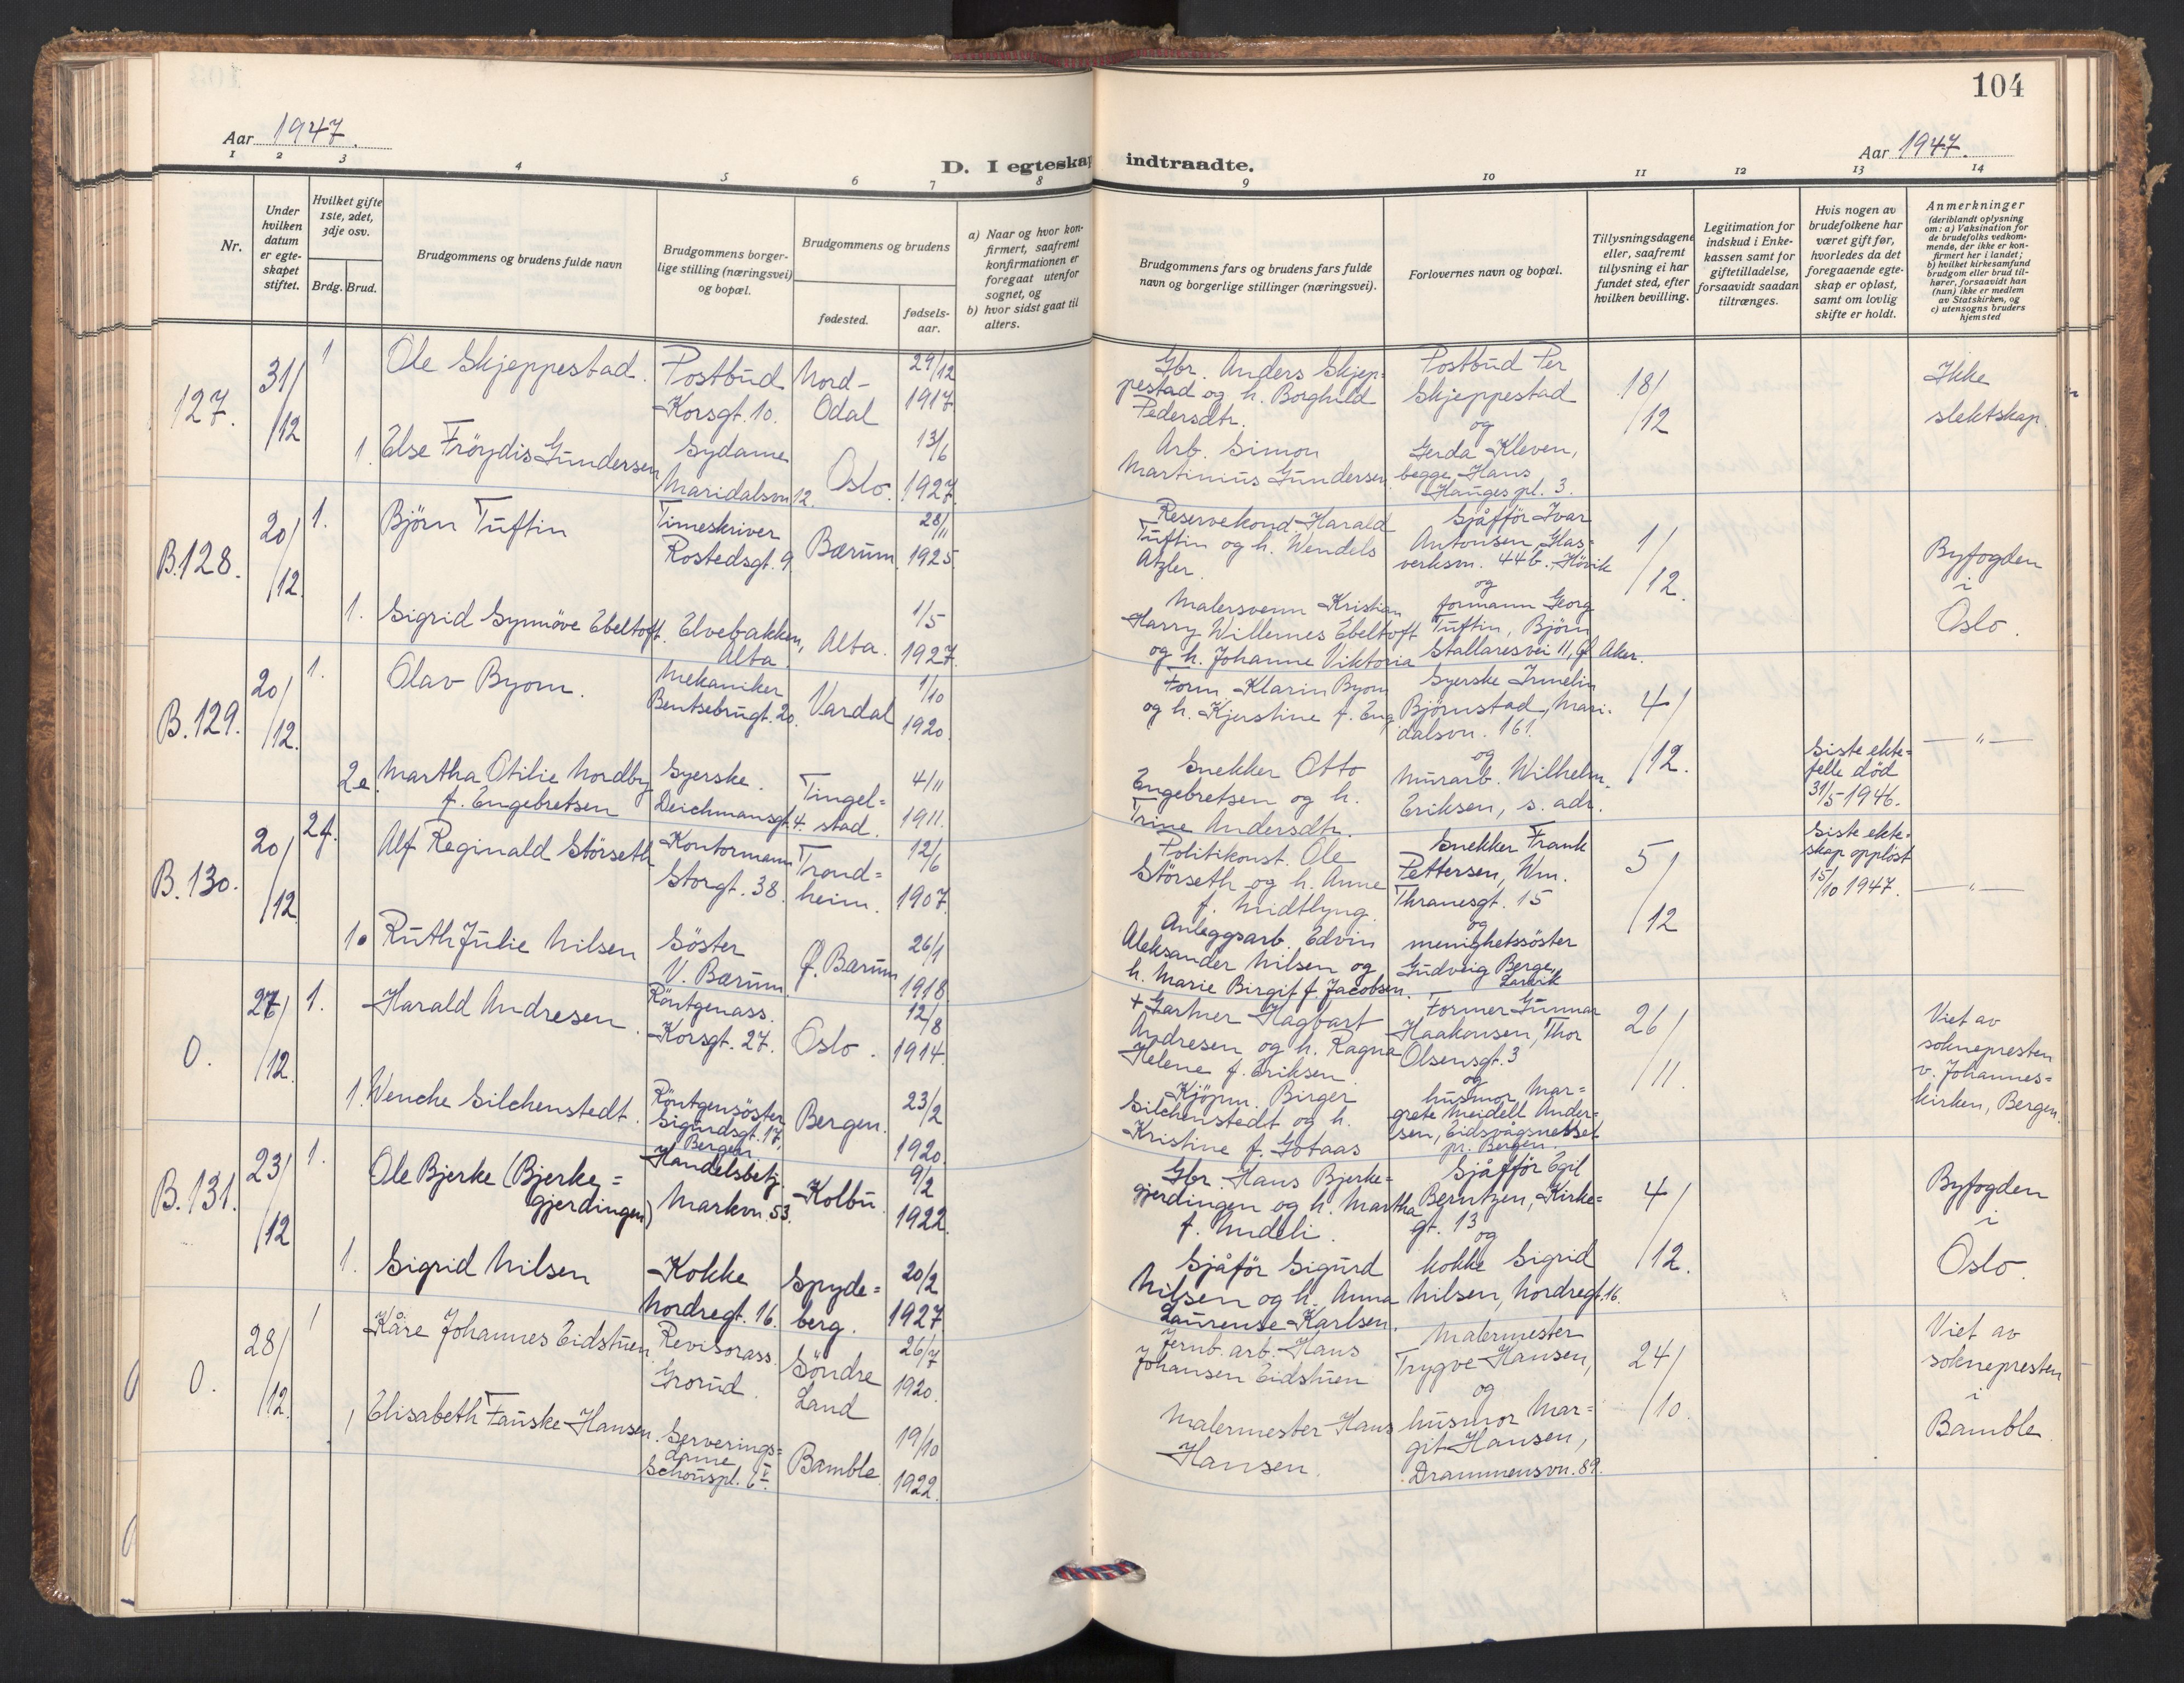 104
Aar 1947.
Aar 1947.
D. I egteskap indtraadte.
1 2 3 4 5 6 7 8 9 10 11 12 13 14
Nr.
Under hvilken datum er egteskapet stiftet.
Hvilket gifte 1ste, 2det, 3dje osv.
Brdg. Brud.
Brudgommens og brudens fulde navn
Brudgommens borgerlige stilling (næringsvei) og bopæl.
Brudgommens og brudens
fødested.
fødselsaar.
a) Naar og hvor konfirmert, saafremt konfirmationen er foregaat utenfor sognet, og
b) hvor sidst gaat til alters.
Brudgommens fars og brudens fars fulde navn og borgerlige stillinger (næringsvei).
Forlovernes navn og bopæl.
Tillysningsdagene eller, saafremt tillysning ei har fundet sted, efter hvilken bevilling.
Legitimation for indskud i Enkekassen samt for giftetilladelse, forsaavidt saadan tiltrænges.
Hvis nogen av brudefolkene har været gift før, hvorledes da det foregaaende egteskap er opløst, samt om lovlig skifte er holdt.
Anmerkninger
(deriblandt oplysning om: a) Vaksination for de brudefolks vedkommende, der ikke er konfirmert her i landet; b) hvilket kirkesamfund brudgom eller brud tilhører, forsaavidt han (hun) ikke er medlem av Statskirken, og c) utensogns bruders hjemsted
127.
31/12
1
Ole Skjeppestad.
Postbud
Korsgt. 10.
Nord-
Odal
29/12
1917
Gbr. Anders Skjep=
pestad og h. Borghild
Pedersdtr.
Postbud Per
Skjeppestad
og
18/12
Ikke
slektskap.
1.
Else Fröydis Gundersen
Sydame
Maridalsvn 12.
Oslo.
13/6
1927.
Arb. Simon
Martinius Gundersen.
Gerda Kleven,
begge Hans
Hauges pl. 3.
B.128.
20/12
1.
Björn Tuftin
Timeskriver
Rostedsgt. 9.
Bærum
28/11
1925
Reservekond. Harald
Tuftin og h. Wendels
Atzler.
Sjåfför Ivar
Antonsen, Glas=
verksvn. 44b. Hövik
og
1/12.
Byfogden
i
Oslo.
1.
Sigrid Synnöve Ebeltoft.
Elvebakken,
Alta.
Alta.
1/5
1927.
Malersvenn Kristian
Harry Willernes Ebeltoft
og h. Johanne Viktoria
formann Georg
Tuftin, Björn
Stallaresvei 11, Ø. Aker.
B.129.
20/12.
1.
Olav Byom.
Mekaniker
Bentsebrugt. 20.
Vardal
1/10
1920.
Form. Klarin Byom
og h. Kjerstine f. Eng
Syerske Irmelin
Björnstad, Mari-
dalsvn. 161.
og
4/12.
— " —
2e.
Martha Otilie Nordby
f. Engebretsen
Syerske.
Deichmansgt. 4.
Tingel=
stad.
4/11
1911.
Snekker Otto
Engebretsen og h.
Trine Andersdtr.
Murarb. Wilhelm
Eriksen, s. adr.
Siste ekte=
felle död
31/5 1946.
B.130.
20/12
2f.
Alf Reginald Störseth
Kontormann
Storgt. 38.
Trond=
heim.
12/6
1907.
Politikonst. Ole
Störseth og h. Anne
f. Midtlyng.
Snekker Frank
Pettersen, Wm.
Thranesgt. 15
og
5/12
Siste ekte=
skap opplöst
15/10 1947.
— " —
1.
Ruth Julie Nilsen
Söster
V. Bærum.
Ø. Bærum
26/1
1918
Anleggsarb. Edvin
Aleksander Nilsen og
h. Marie Birgit f. Jacobsen.
menighetssöster
Gudveig Berge,
Larvik
0.
27/12.
1.
Harald Andresen.
Röntgenass.
Korsgt. 27.
Oslo.
12/8
1914.
+ Gartner Hagbart
Andresen og h. Ragna
Helene f. Eriksen.
Former Gunnar
Haakonsen, Thor
Olsensgt. 3
og
26/11.
Viet av
soknepresten
v. Johannes=
kirken, Bergen.
1.
Wenche Silchenstedt.
Röntgensöster
Sigurdsgt. 17,
Bergen.
Bergen.
23/2
1920.
Kjöpm. Birger
Silchenstedt og h.
Kristine f. Gotaas
husmor Mar=
grete Meidell Ander=
sen, Eidsvågsnesset
pr. Bergen.
B.131.
23/12
1.
Ole Bjerke (Bjerke=
gjerdingen)
Handelsbetj.
Markvn. 53.
Kolbu
9/2
1922.
Gbr. Hans Bjerke=
gjerdingen og h. Martha
f. Nudeli.
Sjåfför Egil
Berntzen, Kirke=
gt. 13
og
4/12.
Byfogden
i
Oslo.
1.
Sigrid Nilsen
Kokke
Nordregt. 16.
Spyde=
berg.
20/2
1927.
Sjåför Sigurd
Nilsen og h. Anna
Laurense Karlsen.
kokke Sigrid
Nilsen, Nordregt. 16.
0.
28/12.
1
Kåre Johannes Eidstuen.
Revisorass.
Grorud.
Söndre
Land
26/7
1920.
Jernb. arb. Hans
Johansen Eidstuen
Malermester
Trygve Hansen,
og
24/10.
Viet av
soknepresten
i
Bamble.
1
Elisabeth Fauske Hansen.
Serverings=
dame
Schouspl.
Bamble
19/10
1922.
Malermester Hans
Hansen.
husmor Mar=
git Hansen,
Drammensvn. 89.